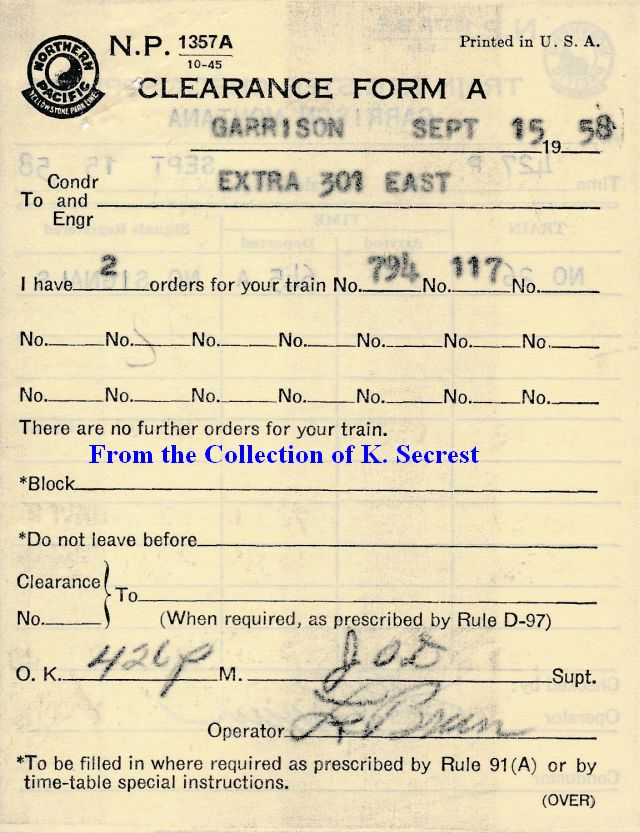 NORTHERN PACIFIC
YELLOWSTONE PARK LINE
N.P. 1357A
10-45
Printed in U. S. A.
CLEARANCE FORM A
GARRISON SEPT 15 19 58
Condr
To and EXTRA 301 EAST
Engr
I have 2 orders for your train No. 794 No. 117 No.
No. No. No. No. No. No. No.
No. No. No. No. No. No. No.
There are no further orders for your train.
From the Collection of K. Secrest
*Block
*Do not leave before
Clearance
To
No. (When required, as prescribed by Rule D-97)
O. K. 426 P M. JOD Supt.
Operator
*To be filled in where required as prescribed by Rule 91(A) or by
time-table special instructions.
(OVER)